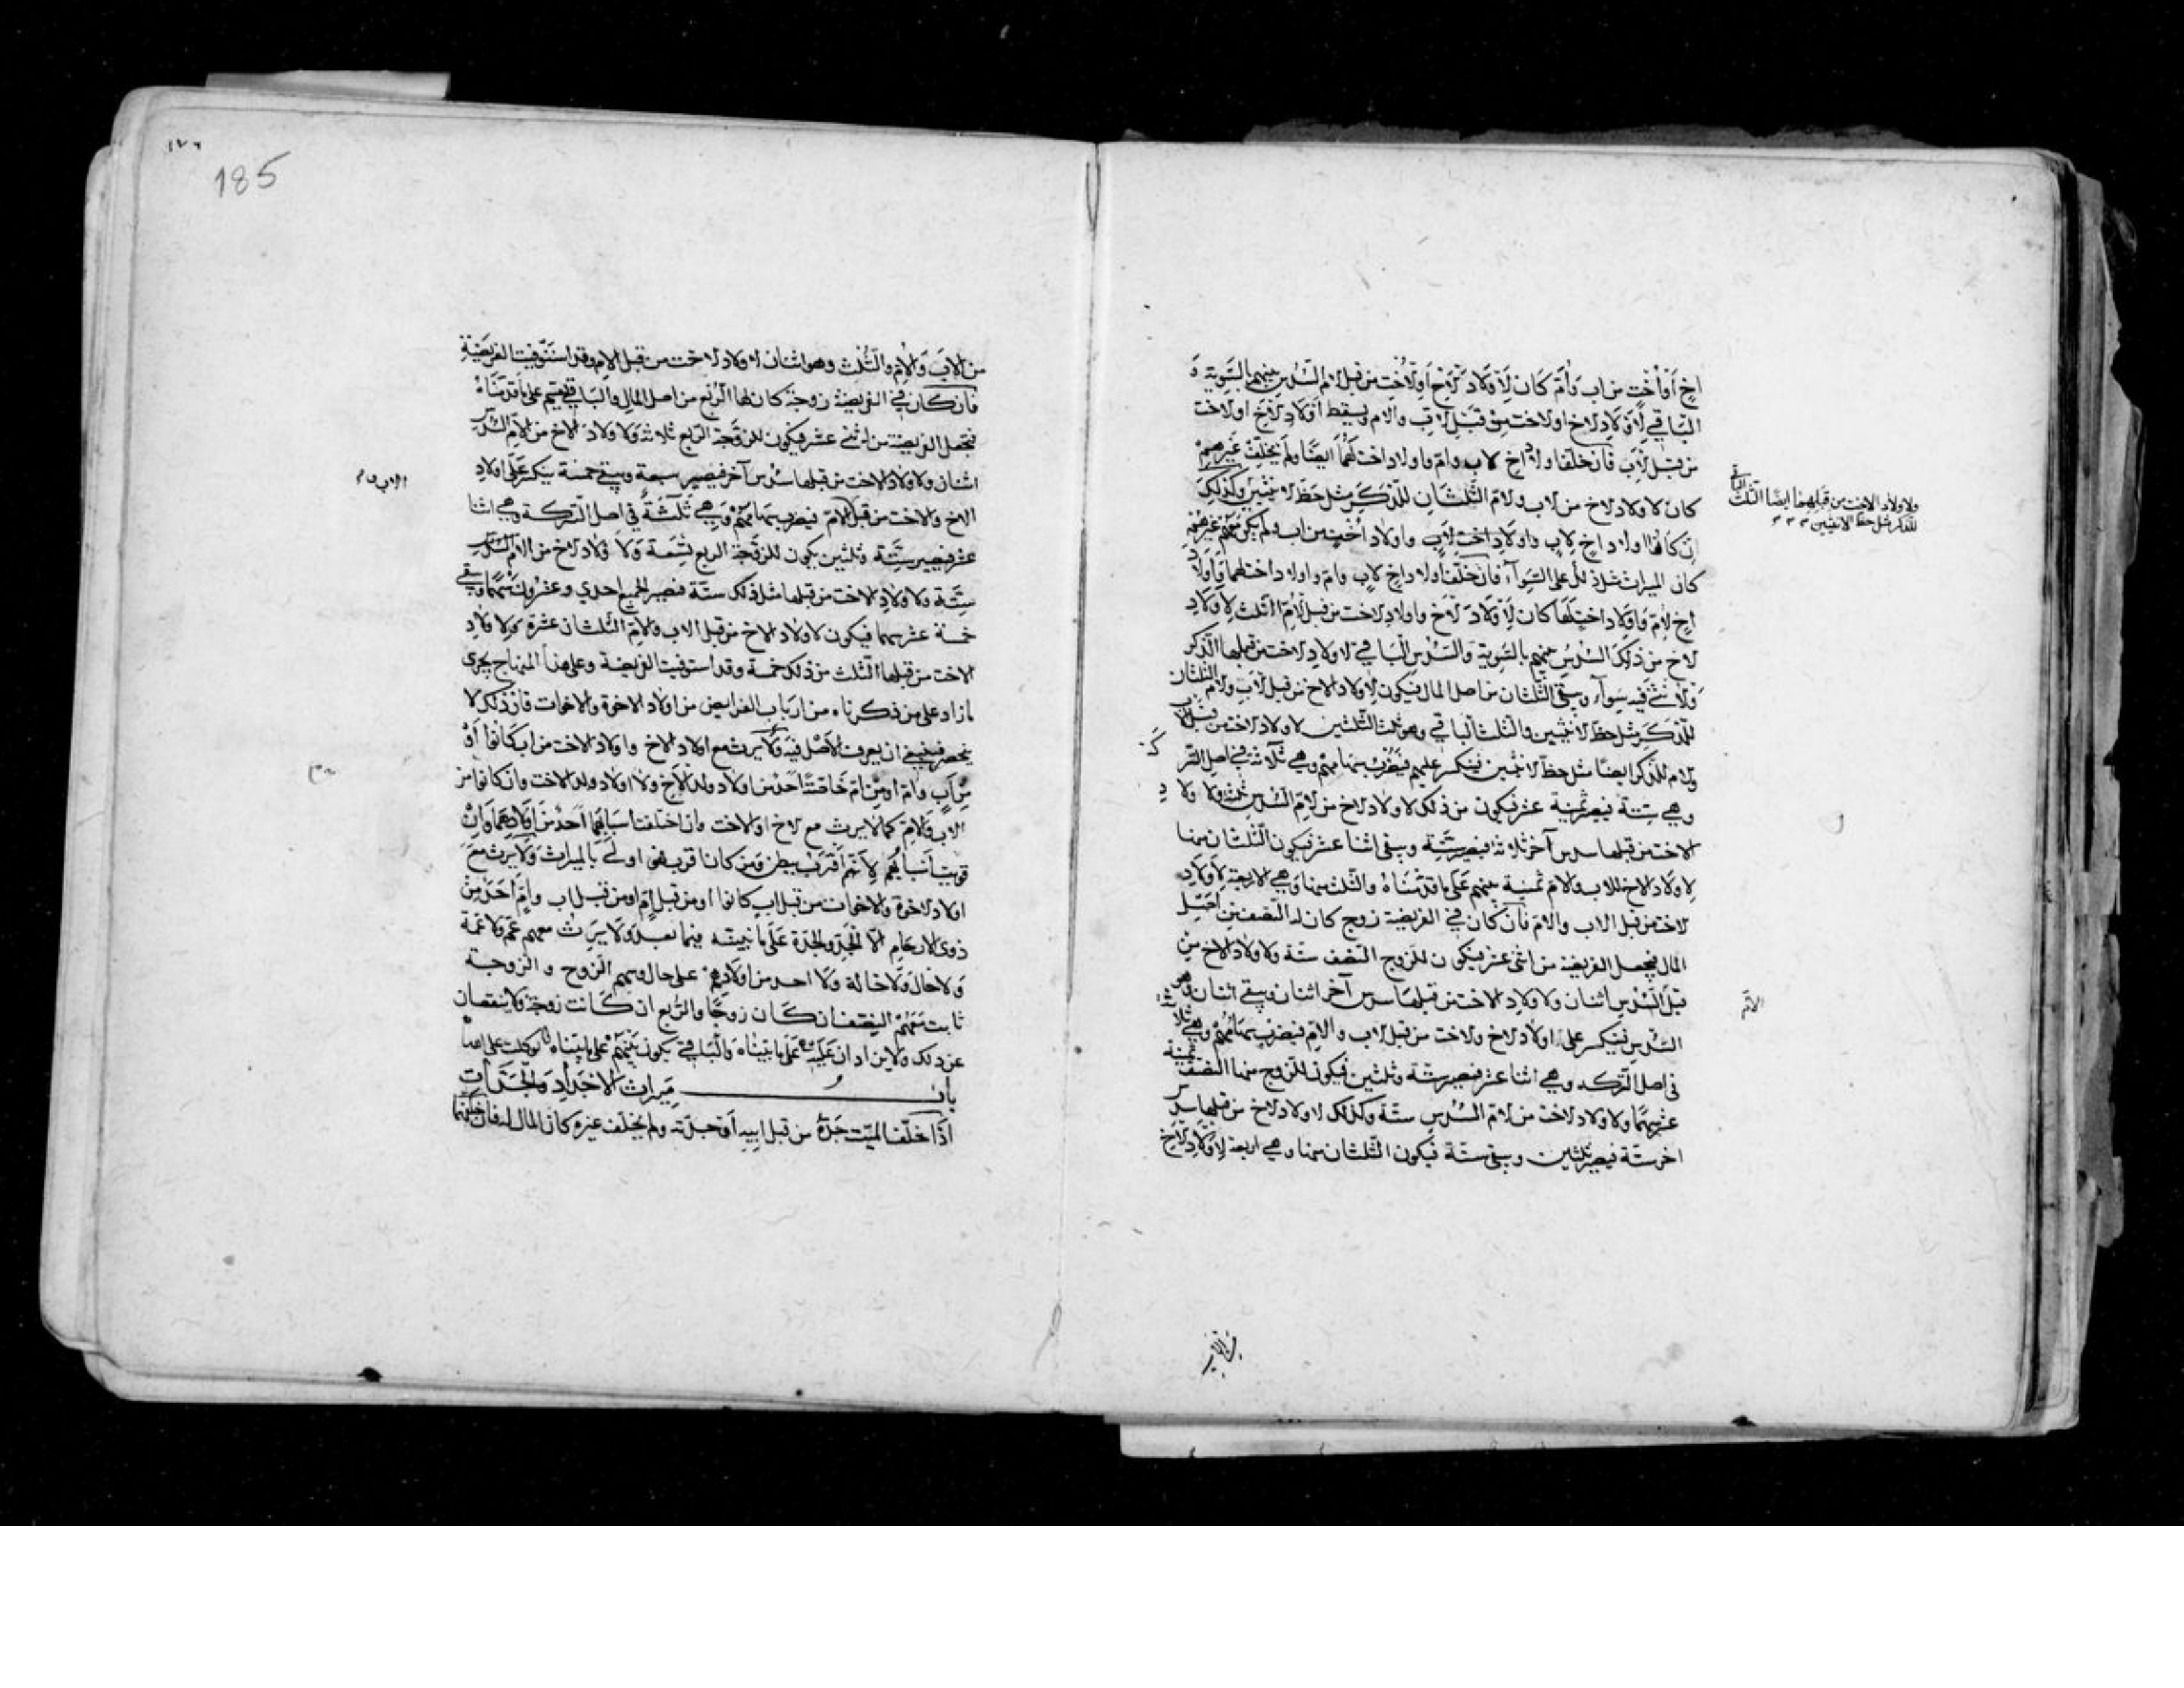 اخٍ أَوْ أُخْتٍ من اب وَأُمّ كَان لِأَوْلَادِ الْأَخِ أو الأُخْتِ من قبل الام السُّدس بينهم بالسَّوِيّة وَ
البَاقي لِأَوْلَادِ الاخ او الاخت مِنْ قبَل الابِ والام ويسقط أوْلَادِ الْأخ او الاخت
من قبَل الْأَبِ فَان خلّفا اولاد اخ لاب وامّ واولاد اخت لَهُمَا ايضًا وَلَم يخلّف غَيرهمْ
كان لاولاد الاخ من الاب والامّ الثلثَان للذّكَرِ مثل حَظّ الانثيين وكذلكَ
ولاولاد الاخت من قبَلهما ايضًا الثلث الباقي
للذكر مثل حظ الانثيين
إن كانُوا اولاد اخٍ لابٍ واولَادِ اختٍ لابٍ واولاد أُخْتٍ من اب ولم يكن مَعَهم غيرهُمْ
كان الميراث مثل ذلك على السّوآء فان خَلّفَا اولاد اخٍ لابٍ وامّ واولاد اخت لهما وَاَولاد
اخٍ لِامّ وَاَولاد اختٍ لَهَا كان لِأَوْلَادِ الْأَخ واولادِ الاخت من قبل الْأُمّ الثّلث لِأَوْلَادِ
الاخ من ذَلِكَ السّدُسُ بينهم بالسّويّة وَالسّدُس البَاقي لاولادِ الاخت من قبلها الذّكر
وَالانثى فِيه سَوآء ويبقى الثّلثان من اصل المال فيكون لِاولاد الاخ من قبل الابِ والامّ الثلثان
للذّكَرِ مثل حظ الانثيين والثلث البَاقي وهو ثلث الثّلثين لاولاد الاخت من قبل الاب
والام للذّكر ايضًا مثل حظ الانثيين فينكسر عليهم فَيُضْرَبُ سهامهم وهي ثلاثة في اصل التركة
وهي سِتّة فيصير ثمنية عشر فيكون من ذلك لاولاد الاخ من الامّ السّدس ثلثة ولاولادِ
الاخت من قبلها سدس آخر ثلاثة فيصير ستّة ويبقى اثنا عشر فيكون الثّلثان منها
لِاولَاد الاخ للاب والامّ ثمنية بينهم عَلَى ما قدّمْنَاهُ والثّلث منها وَهِي الاربعة لاولادِ
الاخت من قبل الاب والامّ فان كان في الفريضة زوج كان له النّصف من اصْلِ
المال فيجعل الفريضة من اثنى عشر فيكون للزّوج النّصف ستّة ولاولاد الاخ من
قبل الامّ السّدس اثنان ولاولادِ الاخت من قبلها سدس آخر اثنان ويبقى اثنان وهو
السّدس فينكسر على اولاد الاخ والاخت من قبل الاب والامّ فيضرب سهامُهم وهي ثلاثة
في اصل التّركه وهي اثنا عشر فيصير ستّة وثلثين فيكون للزّوج منها النّصف ثمنية
عشر سهمًا ولاولاد الاخت من الامّ السّدس ستّة وكذلك لاولاد الاخ من قبلها سدس
اخر ستّة فيصير ثلثين ويبقى ستّة فيكون الثّلثان منها وهي اربعة لاولادِ الاخِ
من الاب
١٧٦
185
من الابِ وَالامّ والثّلُث وهو اثنان لاولاد الاخت من قبل الام وقد استَوْفيت الفريضةِ
فان كان في الفريضة زوجة كان لها الرّبع من اصل المال والبَاقي بينهم على ما قدّمناهُ
فتجعل الفريضة من اثنى عشر فيكون للزّوجة الرّبع ثلاثة وَلاولاد الاخ من الامّ السّدس
اثنان ولاولاد الاخت من قبلها سُدُس آخر فيصير سبعة ويبقى خمسة ينكسر عَلى اولادِ
الاخ والاخت من قبل الاب والام فيضرب سهامهُمْ وَهِي ثَلَثَةٌ في اصل التّركة وهي اثنا
عشر فيصير ستَّة وثلثين يكون للزّوجة الربع تِسْعَة وَلاولاد الاخ من الام السّدُس
سِتَّة ولاولادِ الاخت من قبلها مثل ذلك ستّة فيصير الجميع احدى وعشرون سَهْمًا ويبقى
خمسة عشر سهما فيكون لاولاد الاخ من قبل الاب والامّ الثلثان عشرة ولاولادِ
الاخت من قبلها الثّلث من ذلك خمسة وقد استوفيت الفريضة وعلى هذا المنهاج يجرى
ما زاد على من ذكرناه من ارباب الفرايض من اولاد الاخوة والاخوات فان ذلك لا
ينحصر فينبغي ان يعرف الاصل فيه وَلا يرث مع اولاد الاخ واولاد الاخت من اب كانوا أَوْ
مِن أَبٍ وامّ او مِن امّ خَاصّةً أحد من اولاد ولد الْأَخِ ولا اولاد ولد الاخت وان كانوا من
الاب والامّ كما لا يرث مع الاخ او الاخت وان اختلفت اسبَابُهُما أحد من أولادهما وَان
قويت أسبابُهُم لِأنّهم أقرب ببطن وَمَن كان اقرب فهو اولى بالميراث ولا يرث معَ
اولاد الاخوة والاخوات من قبل ابٍ كانوا او من قبل امّ او من قبل اب وامّ أحَد من
ذوى الارحَامِ الّا الجدّ والجدّة عَلى ما نبينّه فيما بعد ولا يَرِث معهم عَمّ ولا عَمّة
وَلا خَال ولا خالة ولا احد من اولادهم على حال وسهم الزوج والزوجة
ثابت معَهُمْ النِصْف ان كَان زوجًا والرّبع ان كَانت زوجة ولا ينقصان
عن ذلك ولا يزادان عَلَيه عَلى ما بيّناه والبَاقي يكون بينَهم على ما بيّناه
باب مِيراث الاجْدادِ والجَدّاتِ
اذَا خلّف الميّت جَدّهُ من قبل ابيهِ أو جدّته ولم يخلّف غيره كان المال له فان خلّفهما